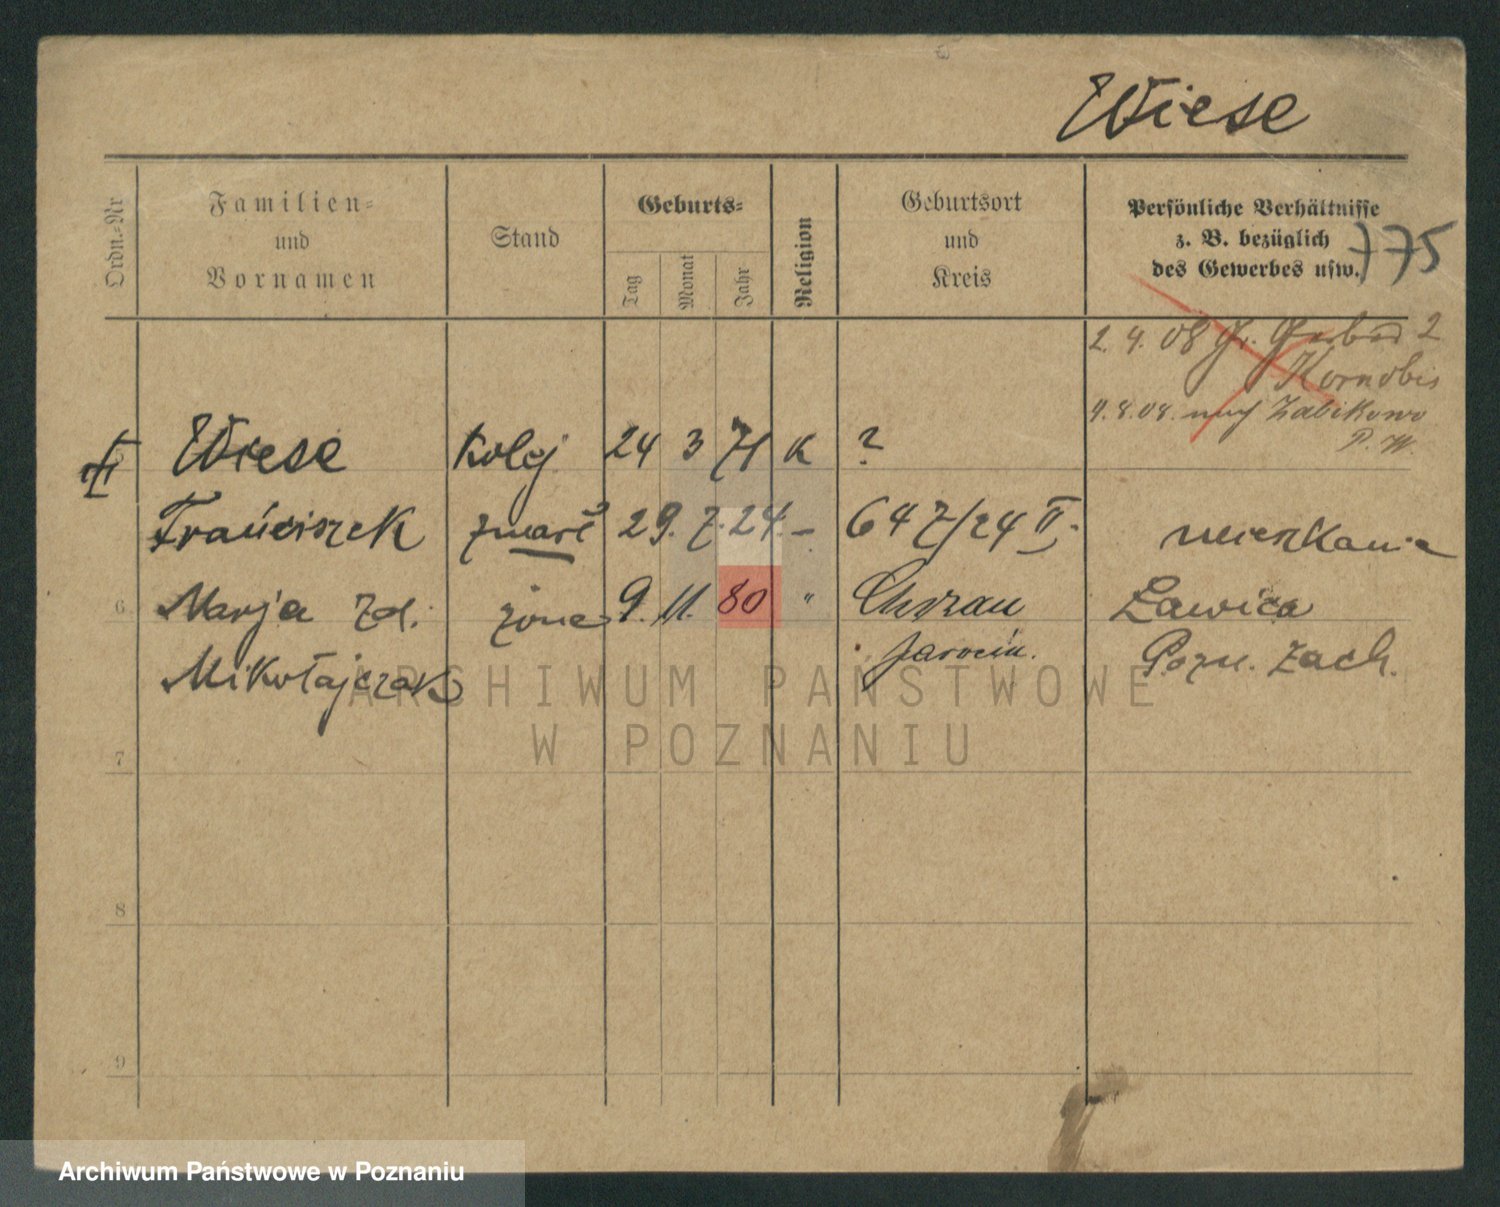 Wiese
Ordn.-Nr
Familien-
und
Vornamen
Stand
Geburts-
Tag
Monat
Jahr
Religion
Geburtsort
und
Kreis
Persönliche Verhältnisse
z. B. bezüglich
des Gewerbes usw.
775
2. 4. 08 2
Kornobis
9. 8. 08. Zabikowo
P. W.
Wiese Kolej 24 3 71 K ?
Franciszek zmarł 29. 7. 24. - 647/24 II. mieszkanie
6 Marja zd. żona 9. 11. 80 " Chrzan Ławica
Mikołajczak Jarocin. Pozn. Zach.
ARCHIWUM PAŃSTWOWE
W POZNANIU
7
8
9
Archiwum Państwowe w Poznaniu